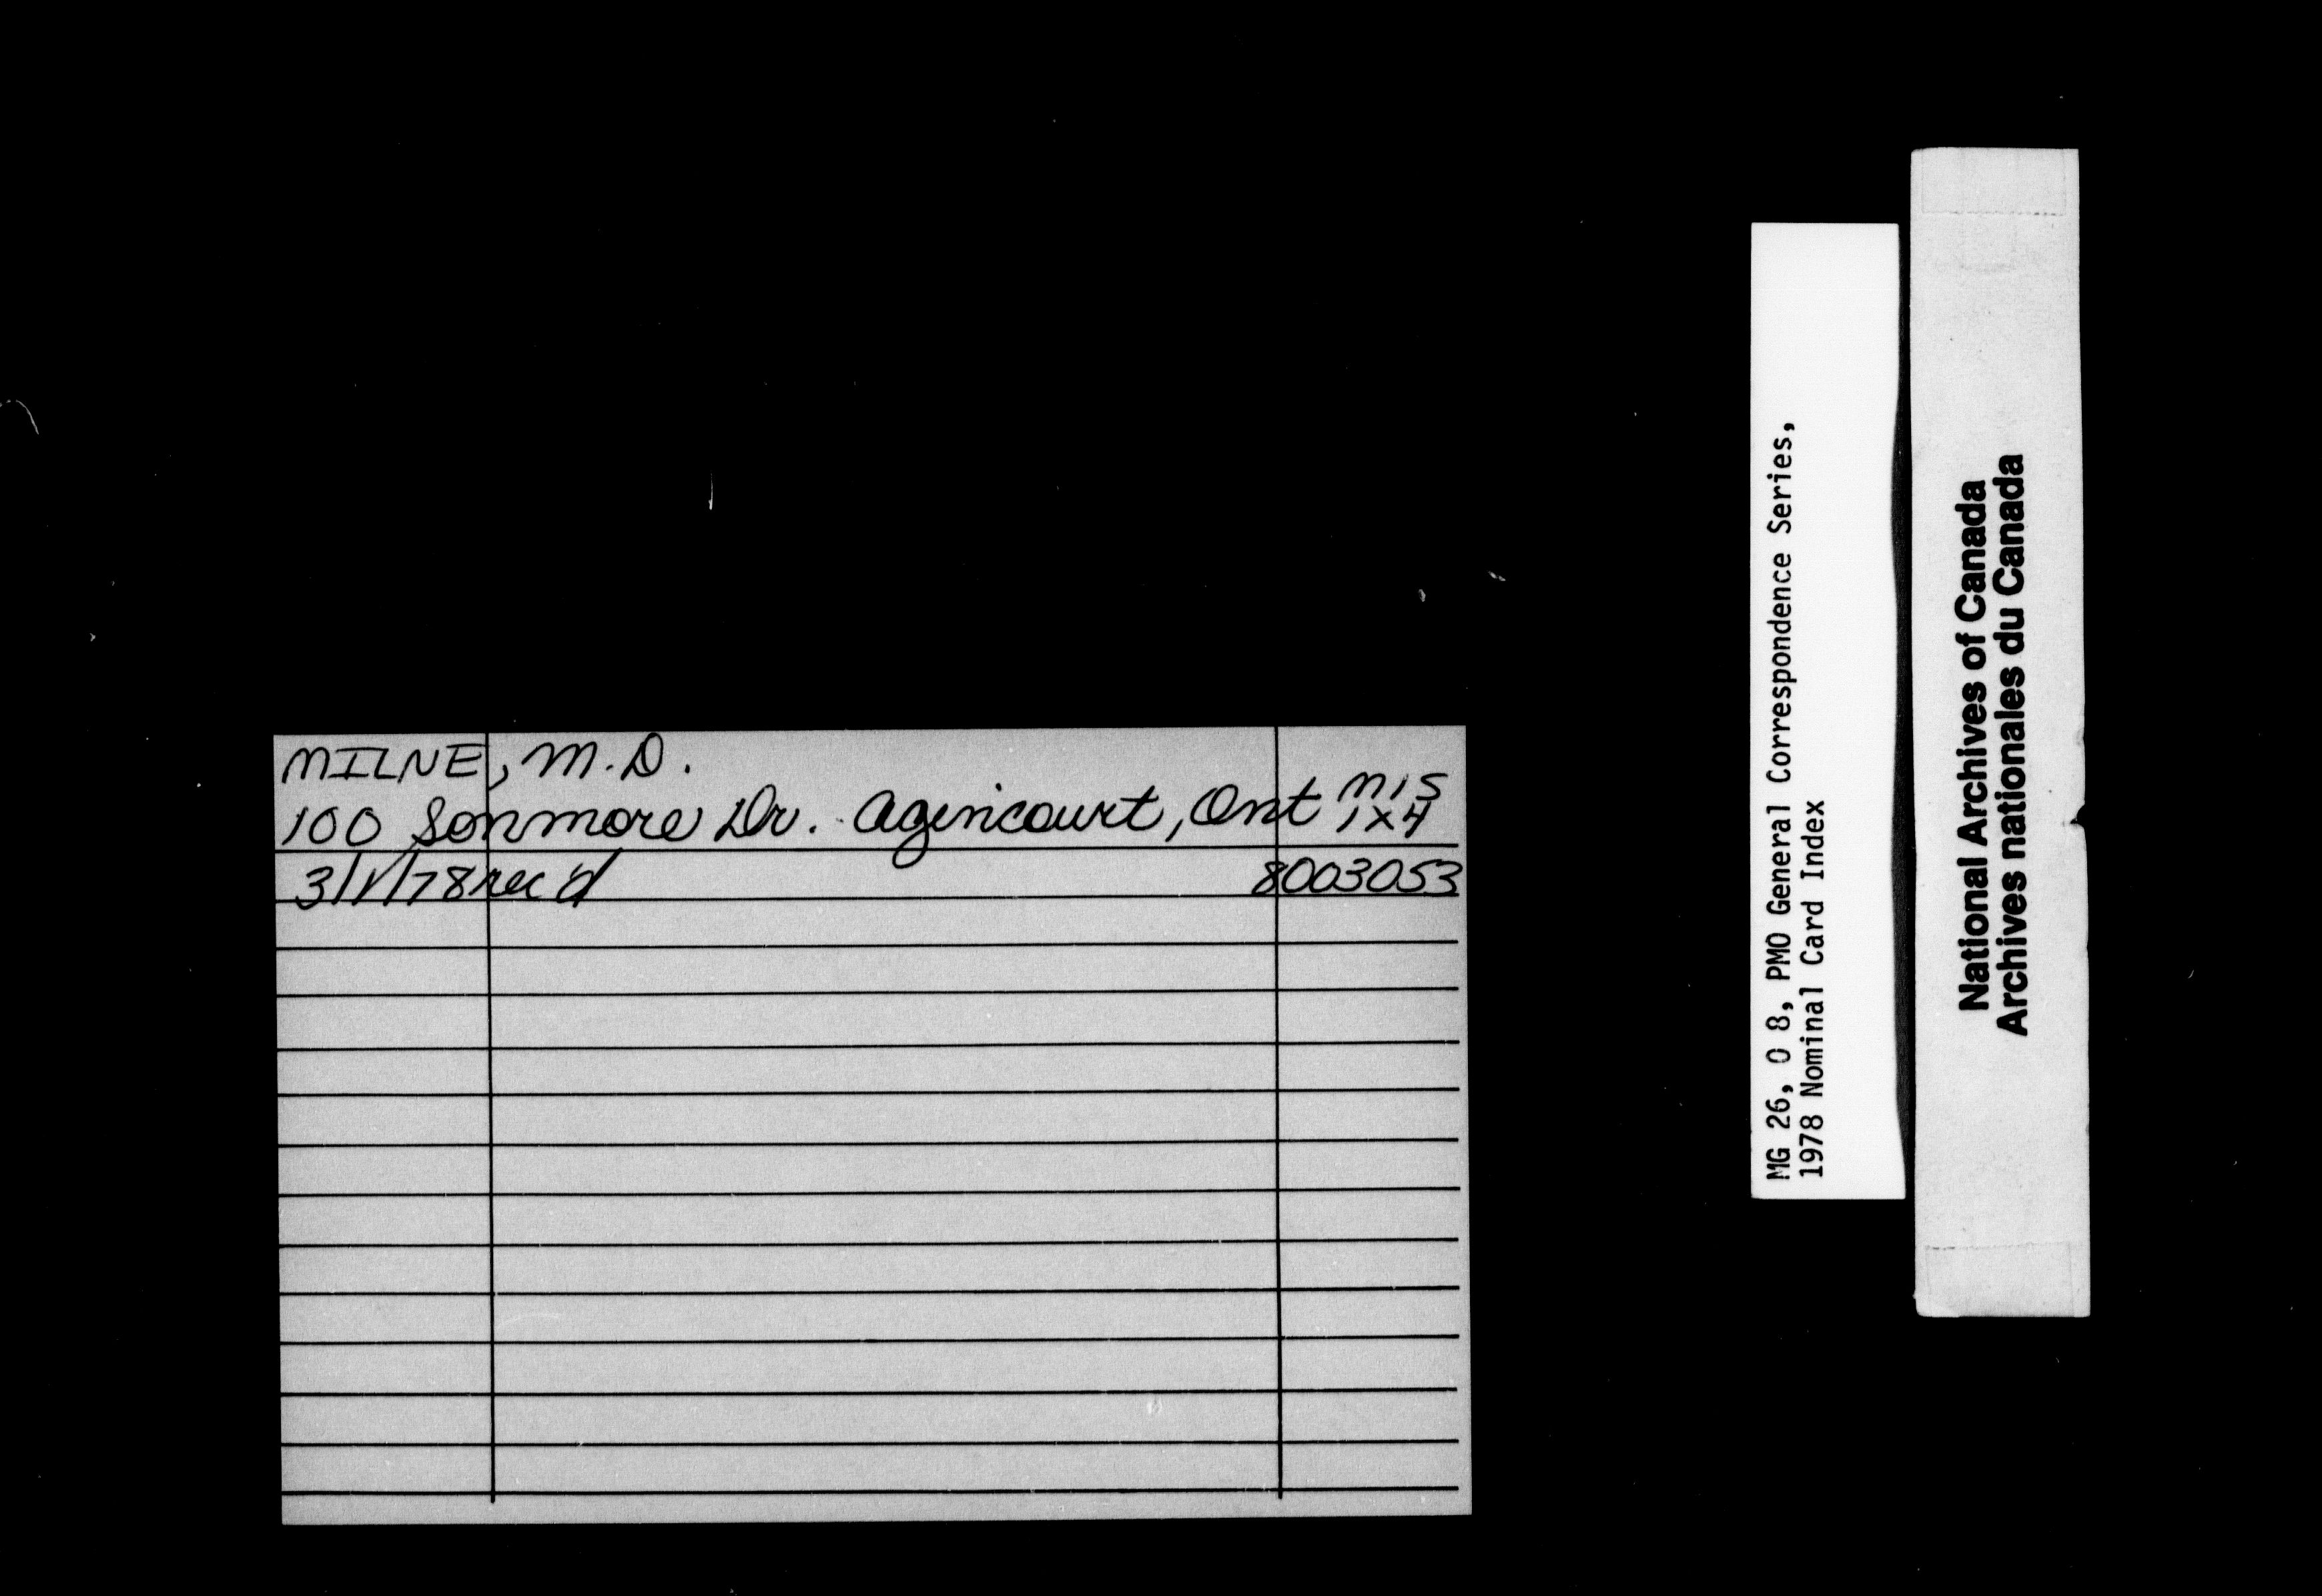 MILNE, M.D.
100 Sonmore Dr. Agincourt, Ont M1S 1X4
3/1/78 rec'd 8003053
MG 26, O 8, PMO General Correspondence Series,
1978 Nominal Card Index
National Archives of Canada
Archives nationales du Canada